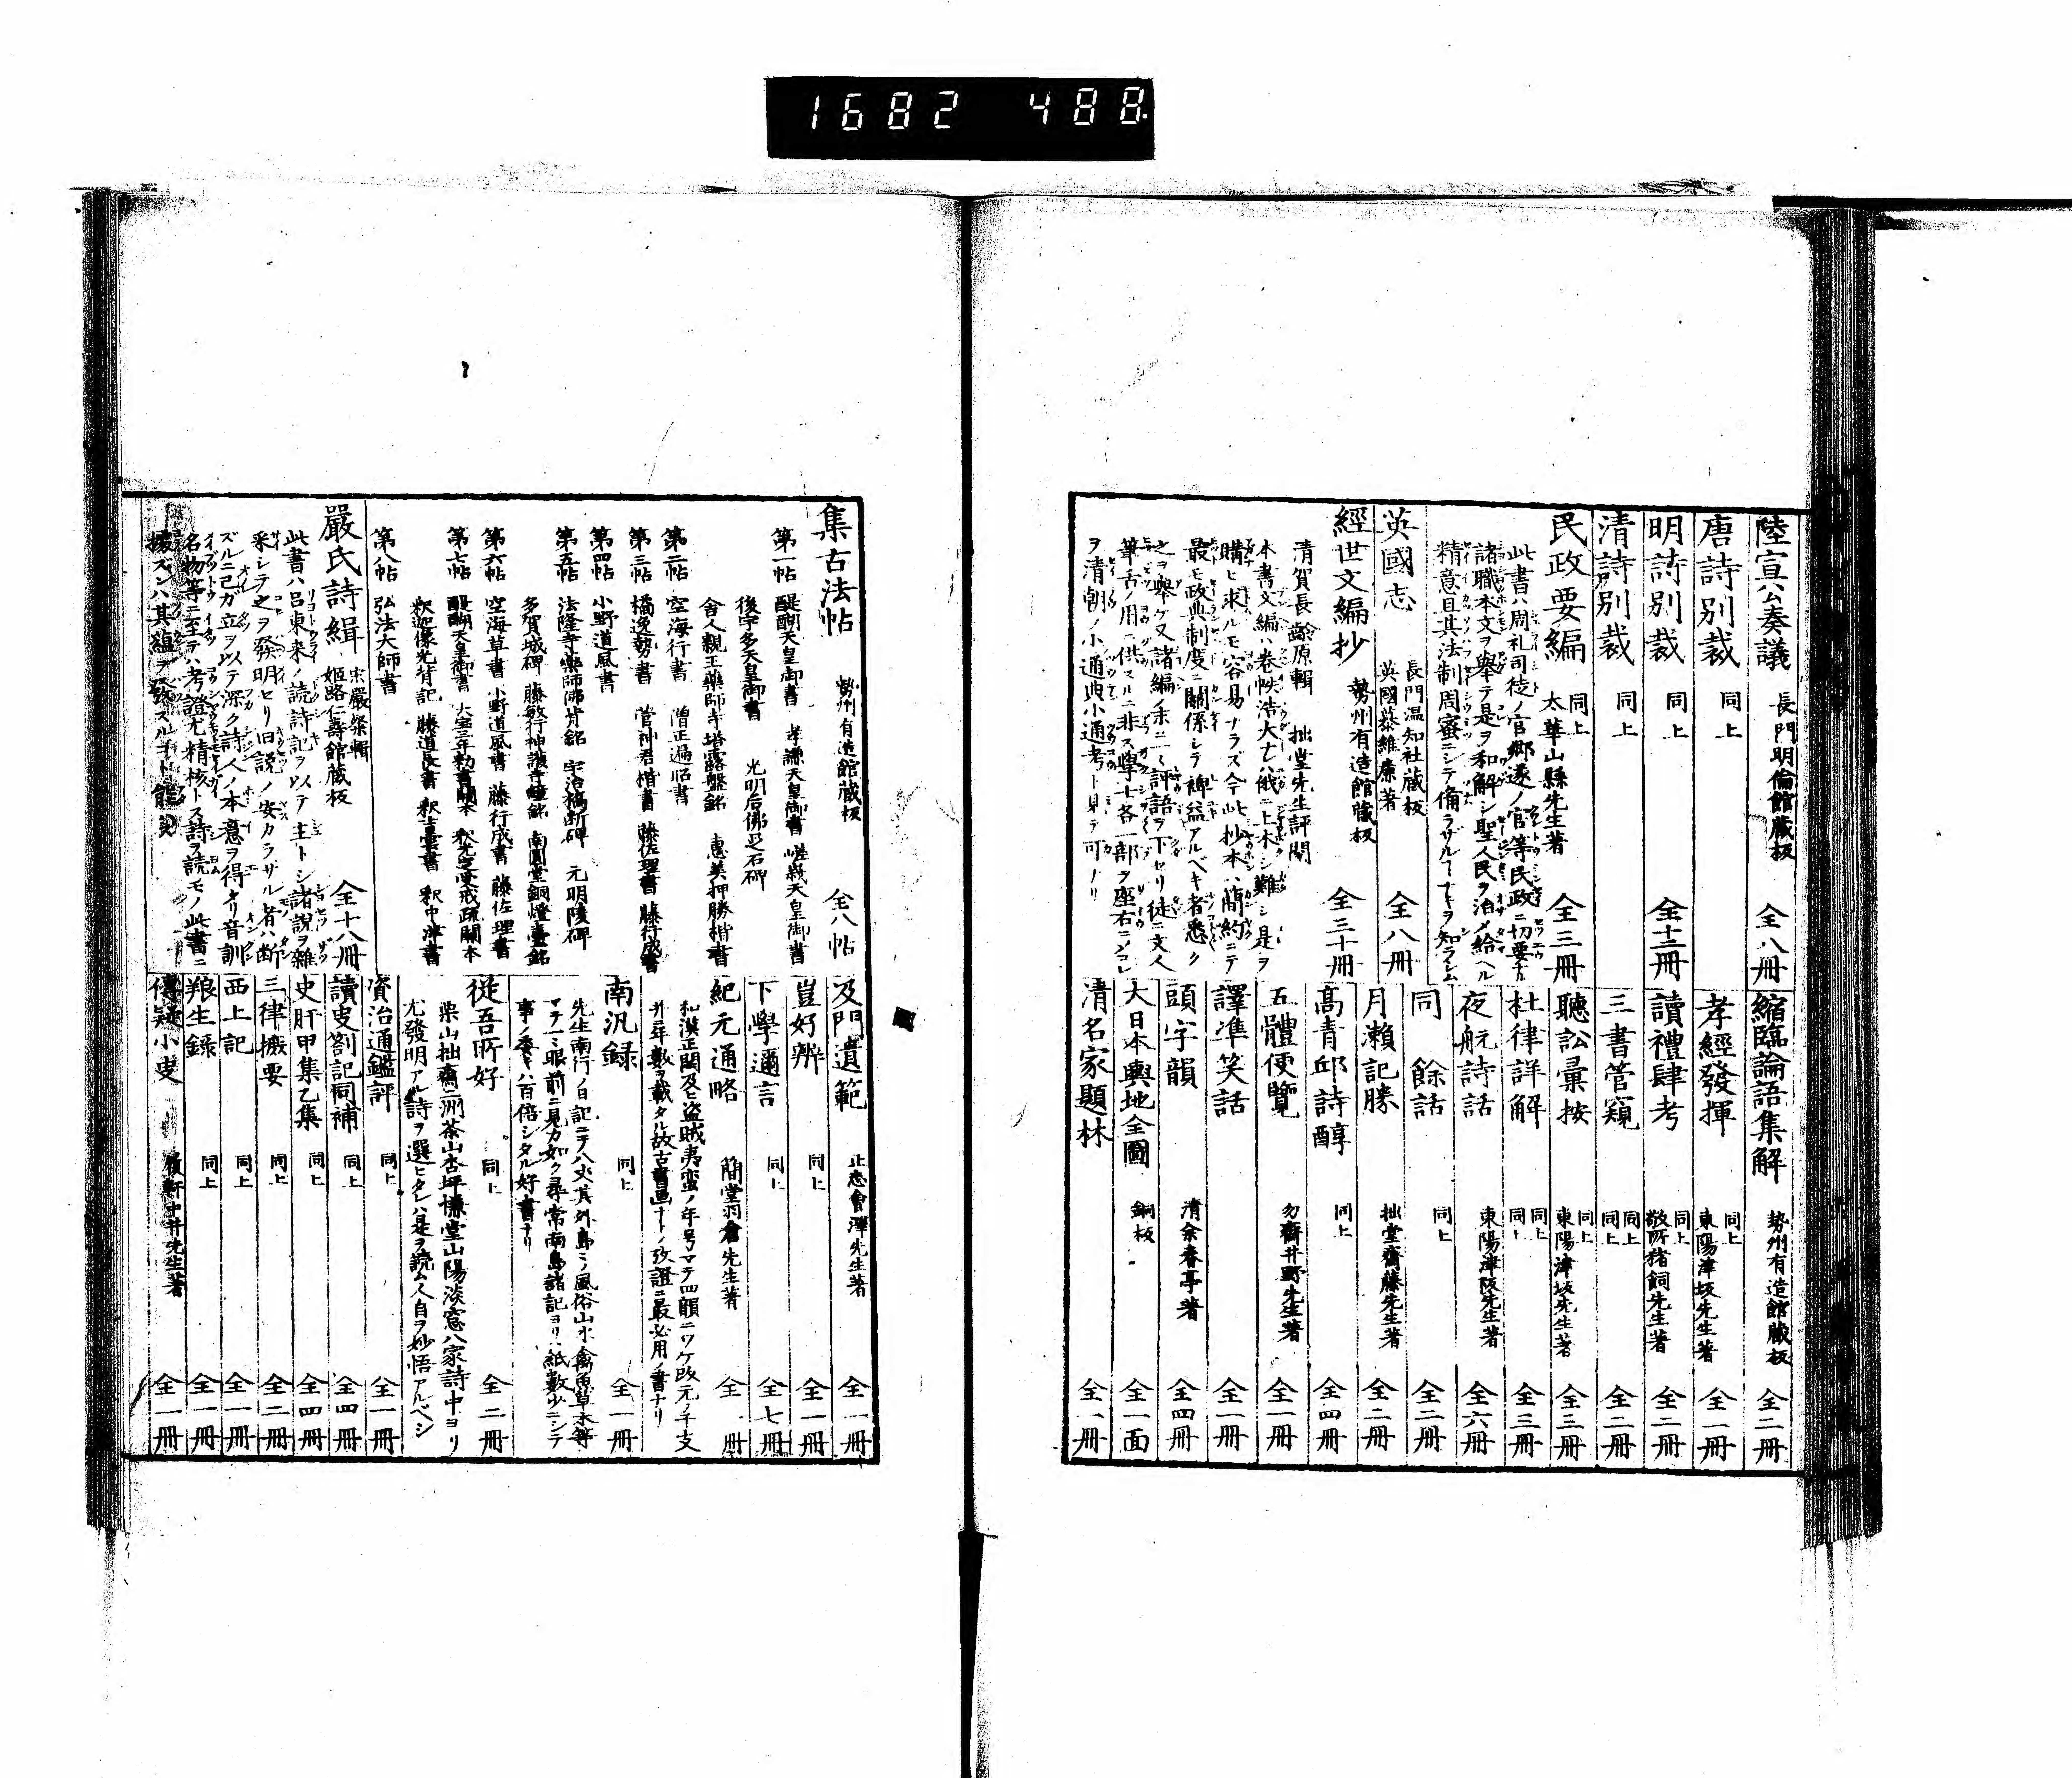 1682 488
陸宣公奏議 長門明倫館蔵板 全八冊
唐詩別裁 同上
明詩別裁 同上 全十二冊
清詩別裁 同上
民政要編 同上 太華山縣先生著 全三冊
此書ハ周礼司徒ノ官郷遂ノ官等民政ニ切要ナル
諸職本文ヲ擧テ是ヲ和解シ聖人民ヲ治メ給ヘル
精意且其法制周蜜ニシテ備ラザルヿナキヲ知ラシム
英國志 長門温知社蔵板 英國慕維廉著 全八冊
經世文編抄 勢州有造館蔵板 全三十冊
清賀長齡原輯 拙堂先生評閲
本書文編ハ卷帙浩大ナレハ俄ニ上木シ難シ是ヲ
購ヒ求ルモ容易ナラズ今此抄本ハ簡約ニテ
最モ政典制度ニ關係シテ裨益アルベキ者悉ク
之ヲ擧ケ又諸編ノ末ニ評語ヲ下セリ徒ニ文人
筆舌ノ用ニ供スルニ非ス學士各一部ヲ座右ニシコレ
ヲ清朝ノ小通典小通考ト見テ可ナリ
縮臨論語集解 勢州有造館蔵板 全二冊
孝經發揮 同上 東陽津坂先生著 全一冊
讀禮肆考 同上 敬所猪飼先生著 全二冊
三書管窺 同上 同上 全二冊
聽訟彙按 同上 東陽津坂先生著 全三冊
杜律詳解 同上 同上 全三冊
夜航詩話 東陽津阪先生著 全六冊
同 餘話 同上 全二冊
月瀬記勝 拙堂齋藤先生著 全二冊
高青邱詩醇 同上 全四冊
五體便覽 勿齋井野先生著 全一冊
譯準笑話 全一冊
頭字韻 清余春亭著 全四冊
大日本輿地全圖 銅板 全一面
清名家題林 全一冊
集古法帖 勢州有造館蔵板 全八帖
第一帖 醍醐天皇御書 孝謙天皇御書 嵯峨天皇御書
後宇多天皇御書 光明后佛足石碑
舎人親王藥師寺塔露盤銘 恵美押勝楷書
第二帖 空海行書 僧正遍昭書
第三帖 橘逸勢書 菅神君楷書 藤佐理書 藤行成書
第四帖 小野道風書
第五帖 法隆寺藥師佛背銘 宇治橋断碑 元明陵碑
多賀城碑 藤敏行神護寺鐘銘 南圓堂銅燈臺銘
第六帖 空海草書 小野道風書 藤行成書 藤佐理書
第七帖 醍醐天皇御書 大宝三年勅書閣本 釈光定受戒疏閣本
釈迦像光背記 藤道長書 釈士曇書 釈中津書
第八帖 弘法大師書
嚴氏詩緝 宋嚴粲輯 姫路仁壽館蔵板 全十八冊
此書ハ呂東来ノ読詩記ヲ以テ主トシ諸説ヲ雜
采シテ之ヲ發明セリ旧説ノ安カラザル者ハ断
ズルニ己ガ立ヲ以テ深ク詩人ノ本意ヲ得タリ音訓
名物等ニ至テハ考證尤精核トス詩ヲ読モノ此書ニ
據ズンハ其蘊ヲ發スルヿ能ハ
及門遺範 止悉會澤先生著 全一冊
豈好辨 同上 全一冊
下學邇言 同上 全七冊
紀元通略 簡堂羽倉先生著 全 冊
和漢正閏及ヒ盗賊夷蛮ノ年号マテ四韻ニワケ改元ノ干支
并年數ヲ載タル故古書画ナトノ攷證ニ最必用ノ書ナリ
南汎録 同上 全一冊
先生南行ノ日記ニテ八丈其外島ミノ風俗山水禽魚草木等
マテ一ミ眼前ニ見カ如ク尋常南島諸記ヨリハ紙數少ニシテ
事ノ委キハ百倍シタル好書ナリ
従吾所好 同上 全二冊
栗山拙齋二洲茶山杏坪慊堂山陽淡窓八家詩中ヨリ
尤發明アル詩ヲ選ヒタレハ是ヲ読ム人自ラ妙悟アルベシ
資治通鑑評 同上 全一冊
讀史劄記同補 同上 全四冊
史肝甲集乙集 同上 全四冊
三律撮要 同上 全二冊
西上記 同上 全一冊
狼生録 同上 全一冊
傳疑小史 履軒中井先生著 全一冊